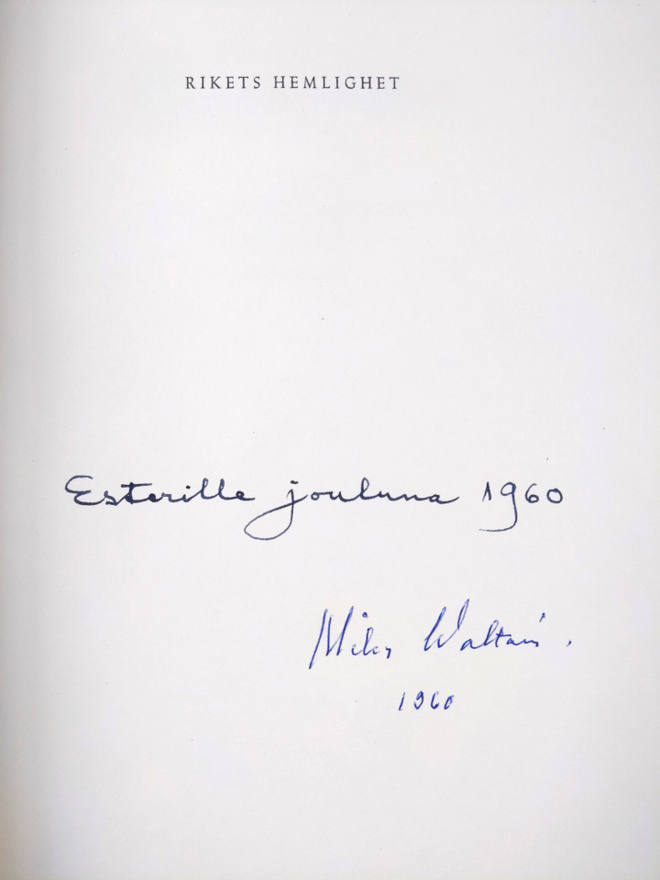 RIKETS HEMLIGHET
Esterille jouluna 1960
Mika Waltari.
1960